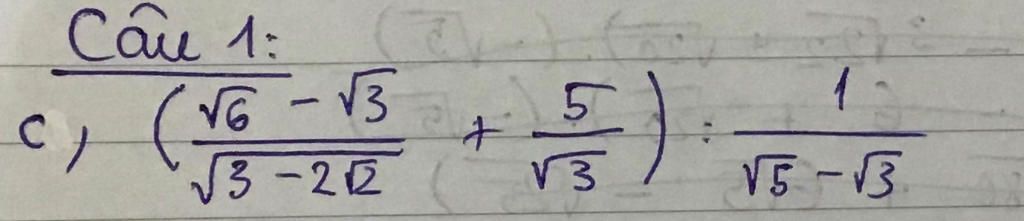 Câu 1:
c, (\frac{√6 - √3}{√(3 - 2√2)} + \frac{5}{√3}) : \frac{1}{√5 - √3}